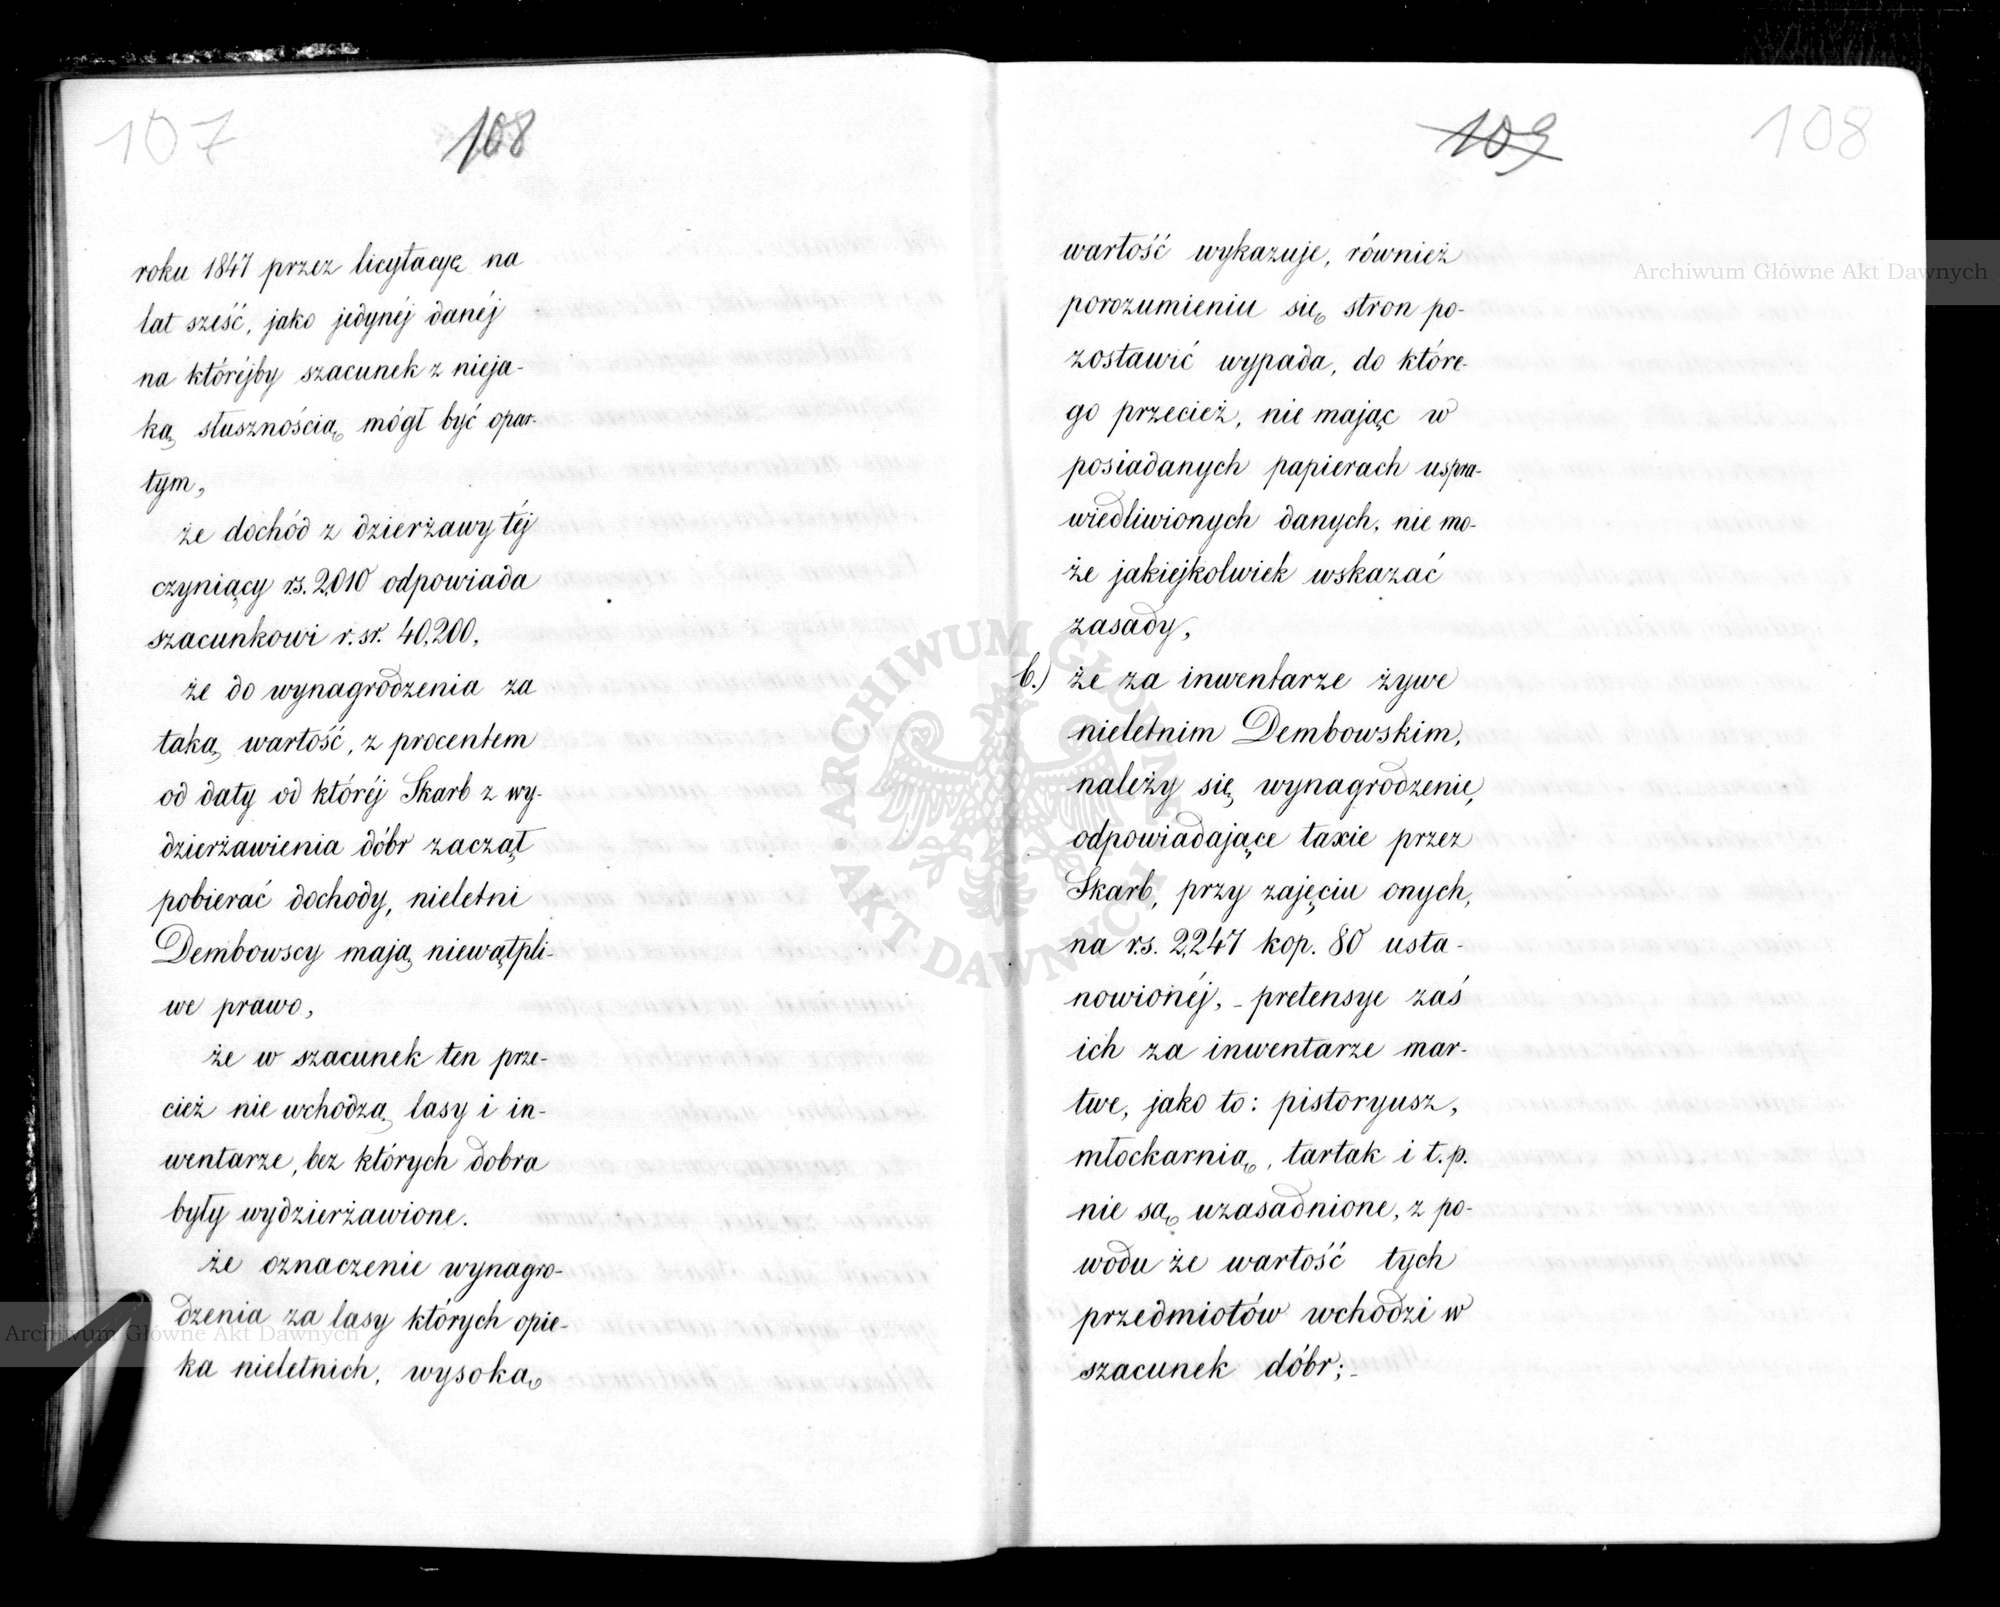 107
108
roku 1847 przez licytacyę na
lat sześć, jako jedynéj danéj
na któréjby szacunek z nieja-
ką słusznością mógł być opar-
tym,
że dochód z dzierżawy téj
czyniący rs. 2,010 odpowiada
szacunkowi r. sr. 40,200,
że do wynagrodzenia za
taką wartość, z procentem
od daty od któréj Skarb z wy-
dzierżawienia dóbr zaczął
pobierać dochody, nieletni
Dembowscy mają niewątpli-
we prawo,
że w szacunek ten prze-
cież nie wchodzą lasy i in-
wentarze, bez których dobra
były wydzierżawione.
że oznaczenie wynagro-
dzenia za lasy których opie-
ka nieletnich, wysoką
109
108
wartość wykazuje, również
porozumieniu się stron po-
zostawić wypada, do które-
go przecież, nie mając w
posiadanych papierach uspra-
wiedliwionych danych, nie mo-
że jakiejkolwiek wskazać
zasady,
b.) że za inwentarze żywe
nieletnim Dembowskim,
należy się wynagrodzenie,
odpowiadające taxie przez
Skarb, przy zajęciu onych,
na rs. 2,247 kop. 80 usta-
nowionéj, - pretensye zaś
ich za inwentarze mar-
twe, jako to: pistoryusz,
młockarnią, tartak i t.p.
nie są uzasadnione, z po-
wodu że wartość tych
przedmiotów wchodzi w
szacunek dóbr;-
Archiwum Główne Akt Dawnych
ARCHIWUM GŁÓWNE AKT DAWNYCH
Archiwum Główne Akt Dawnych